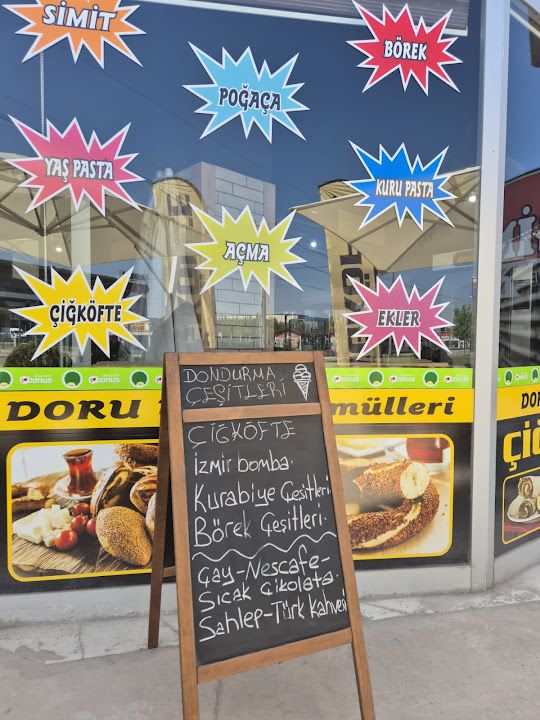 SİMİT
BÖREK
POĞAÇA
YAŞ PASTA
KURU PASTA
AÇMA
ÇİĞKÖFTE
EKLER
bonus
bonus
bonus
DORU
mülleri
DO
Çiğ
DONDURMA
ÇEŞİTLERİ
ÇİĞKÖFTE
İzmir bomba.
Kurabiye Çeşitleri.
Börek Çeşitleri.
Çay-Nescafe-
Sıcak Çikolata.
Sahlep-Türk kahvesi